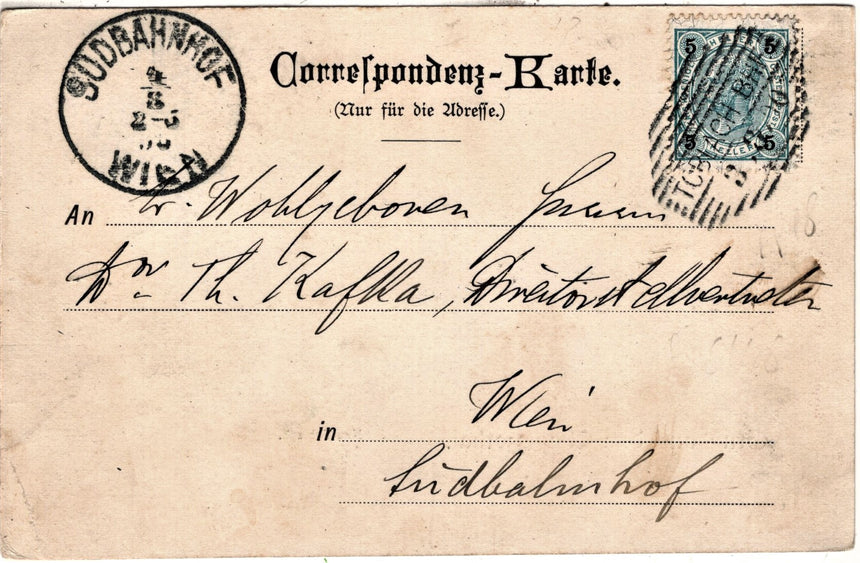 SÜDBAHNHOF
4
8
2-5
WIEN
Correspondenz-Karte.
(Nur für die Adresse.)
5 5
5 5
TOBLACH BH
An Sr. Wohlgeboren Herrn
Dr. Th. Kafka, Directorstellvertreter
in Wien
Südbahnhof